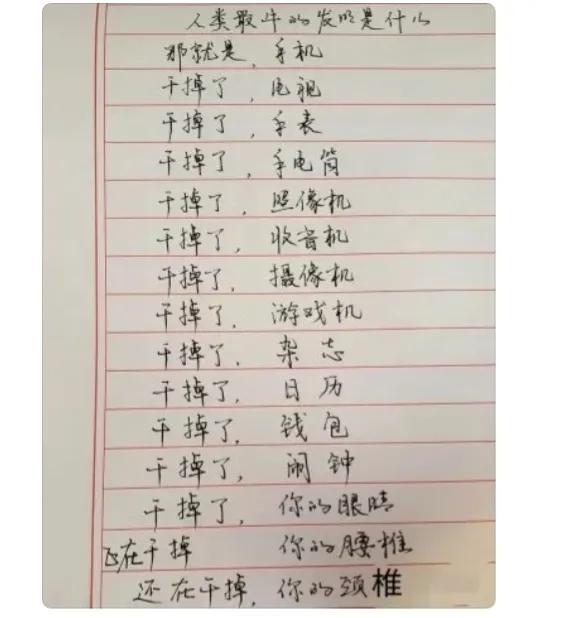 人类最牛的发明是什么
那就是，手机
干掉了，电视
干掉了，手表
干掉了，手电筒
干掉了，照像机
干掉了，收音机
干掉了，摄像机
干掉了，游戏机
干掉了，杂志
干掉了，日历
干掉了，钱包
干掉了，闹钟
干掉了，你的眼睛
在干掉 你的腰椎
还在干掉，你的颈椎